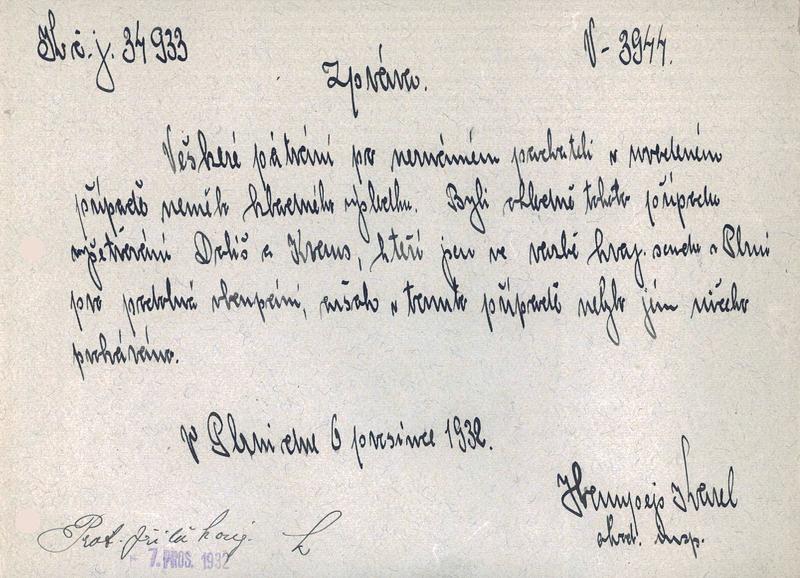 K č. j. 34933
V - 3944.
Zpráva.
Veškeré pátrání po neznámém pachateli v uvedeném
případě nemělo kladného výsledku. Byli ohledně tohoto případu
vyšetřováni Doliš a Kraus, kteří jsou ve vazbě kraj. soudu v Plzni
pro podobná vloupání, avšak v tomto případě nebylo jim ničeho
prokázáno.
V Plzni dne 6 prosince 1932.
Karel
okrd. insp.
Prot.
7. PROS. 1932